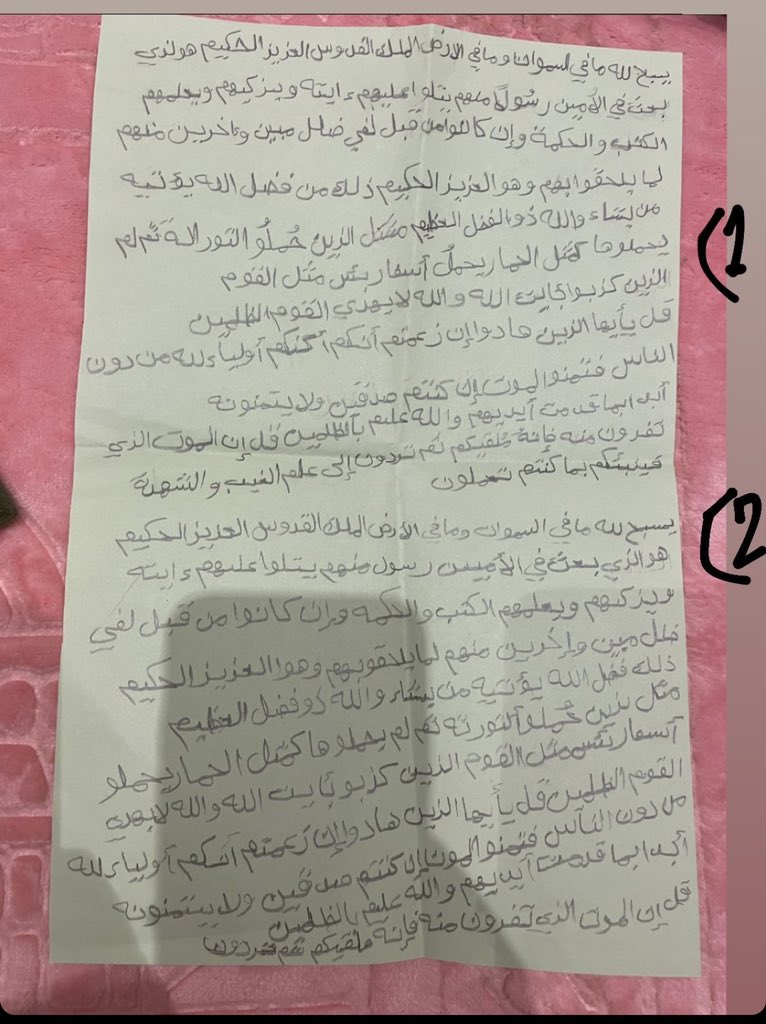 يسبح لله ما في السموات وما في الارض الملك القدوس العزيز الحكيم هو لذي
بعث في الأمين رسولًا منهم يتلوا عليهم ءايته ويزكيهم ويعلمهم
الكتب والحكمة وإن كانوا من قبل لفي ضلل مبين وءاخرين منهم
لما يلحقوا بهم وهو العزيز الحكيم ذلك من فضل الله يؤتيه
من يشاء والله ذو الفضل العظيم مثل الذين حُملُوا التوراة ثم لم
يحملوها كمثل الحمار يحملُ أسفار بئس مثل القوم
الذين كذبوا بايت الله والله لا يهدي القوم الظلمين
قل يأيها الذين هادوا إن زعمتم أنكم أنكم أولياء لله من دون
الناس فتمنوا الموت إن كنتم صدقين ولا يتمنونه
أبدا بما قدمت أيديهم والله عليم بالظلمين قل إن الموت الذي
تفرون منه فإنه ملقيكم ثم تردون إلى علم الغيب والشهدة
فينبئكم بما كنتم تعملون
(1
يسبح لله ما في السموات وما في الأرض الملك القدوس العزيز الحكيم
هو الذي بعث في الأميين رسول منهم يتلوا عليهم ءايته
ويزكيهم ويعلمهم الكتب والحكمه وإن كانوا من قبل لفي
ضلل مبين وإخرين منهم لما يلحقوبهم وهوا العزيز الحكيم
ذلك فضل الله يؤتيه من يشاء والله ذو فضل العظيم
مثل لذين حُملوا التورئه ثم لم يحملوها كمثل الحمار يحملو
أسفار بئس مثل القوم الذين كذبو بئايت الله والله لا يهدي
القوم الظلمين قل يأيها الذين هادوا إن زعمتم أنكم أولياء لله
من دون الناس فتمنوا الموت إن كنتم صدقين ولا يتمنونه
أبدا بما قدمت أيديهم والله عليم بالظلمين
قل إن الموت الذي تفرون منه فإنه ملقيكم ثم تردون
(2